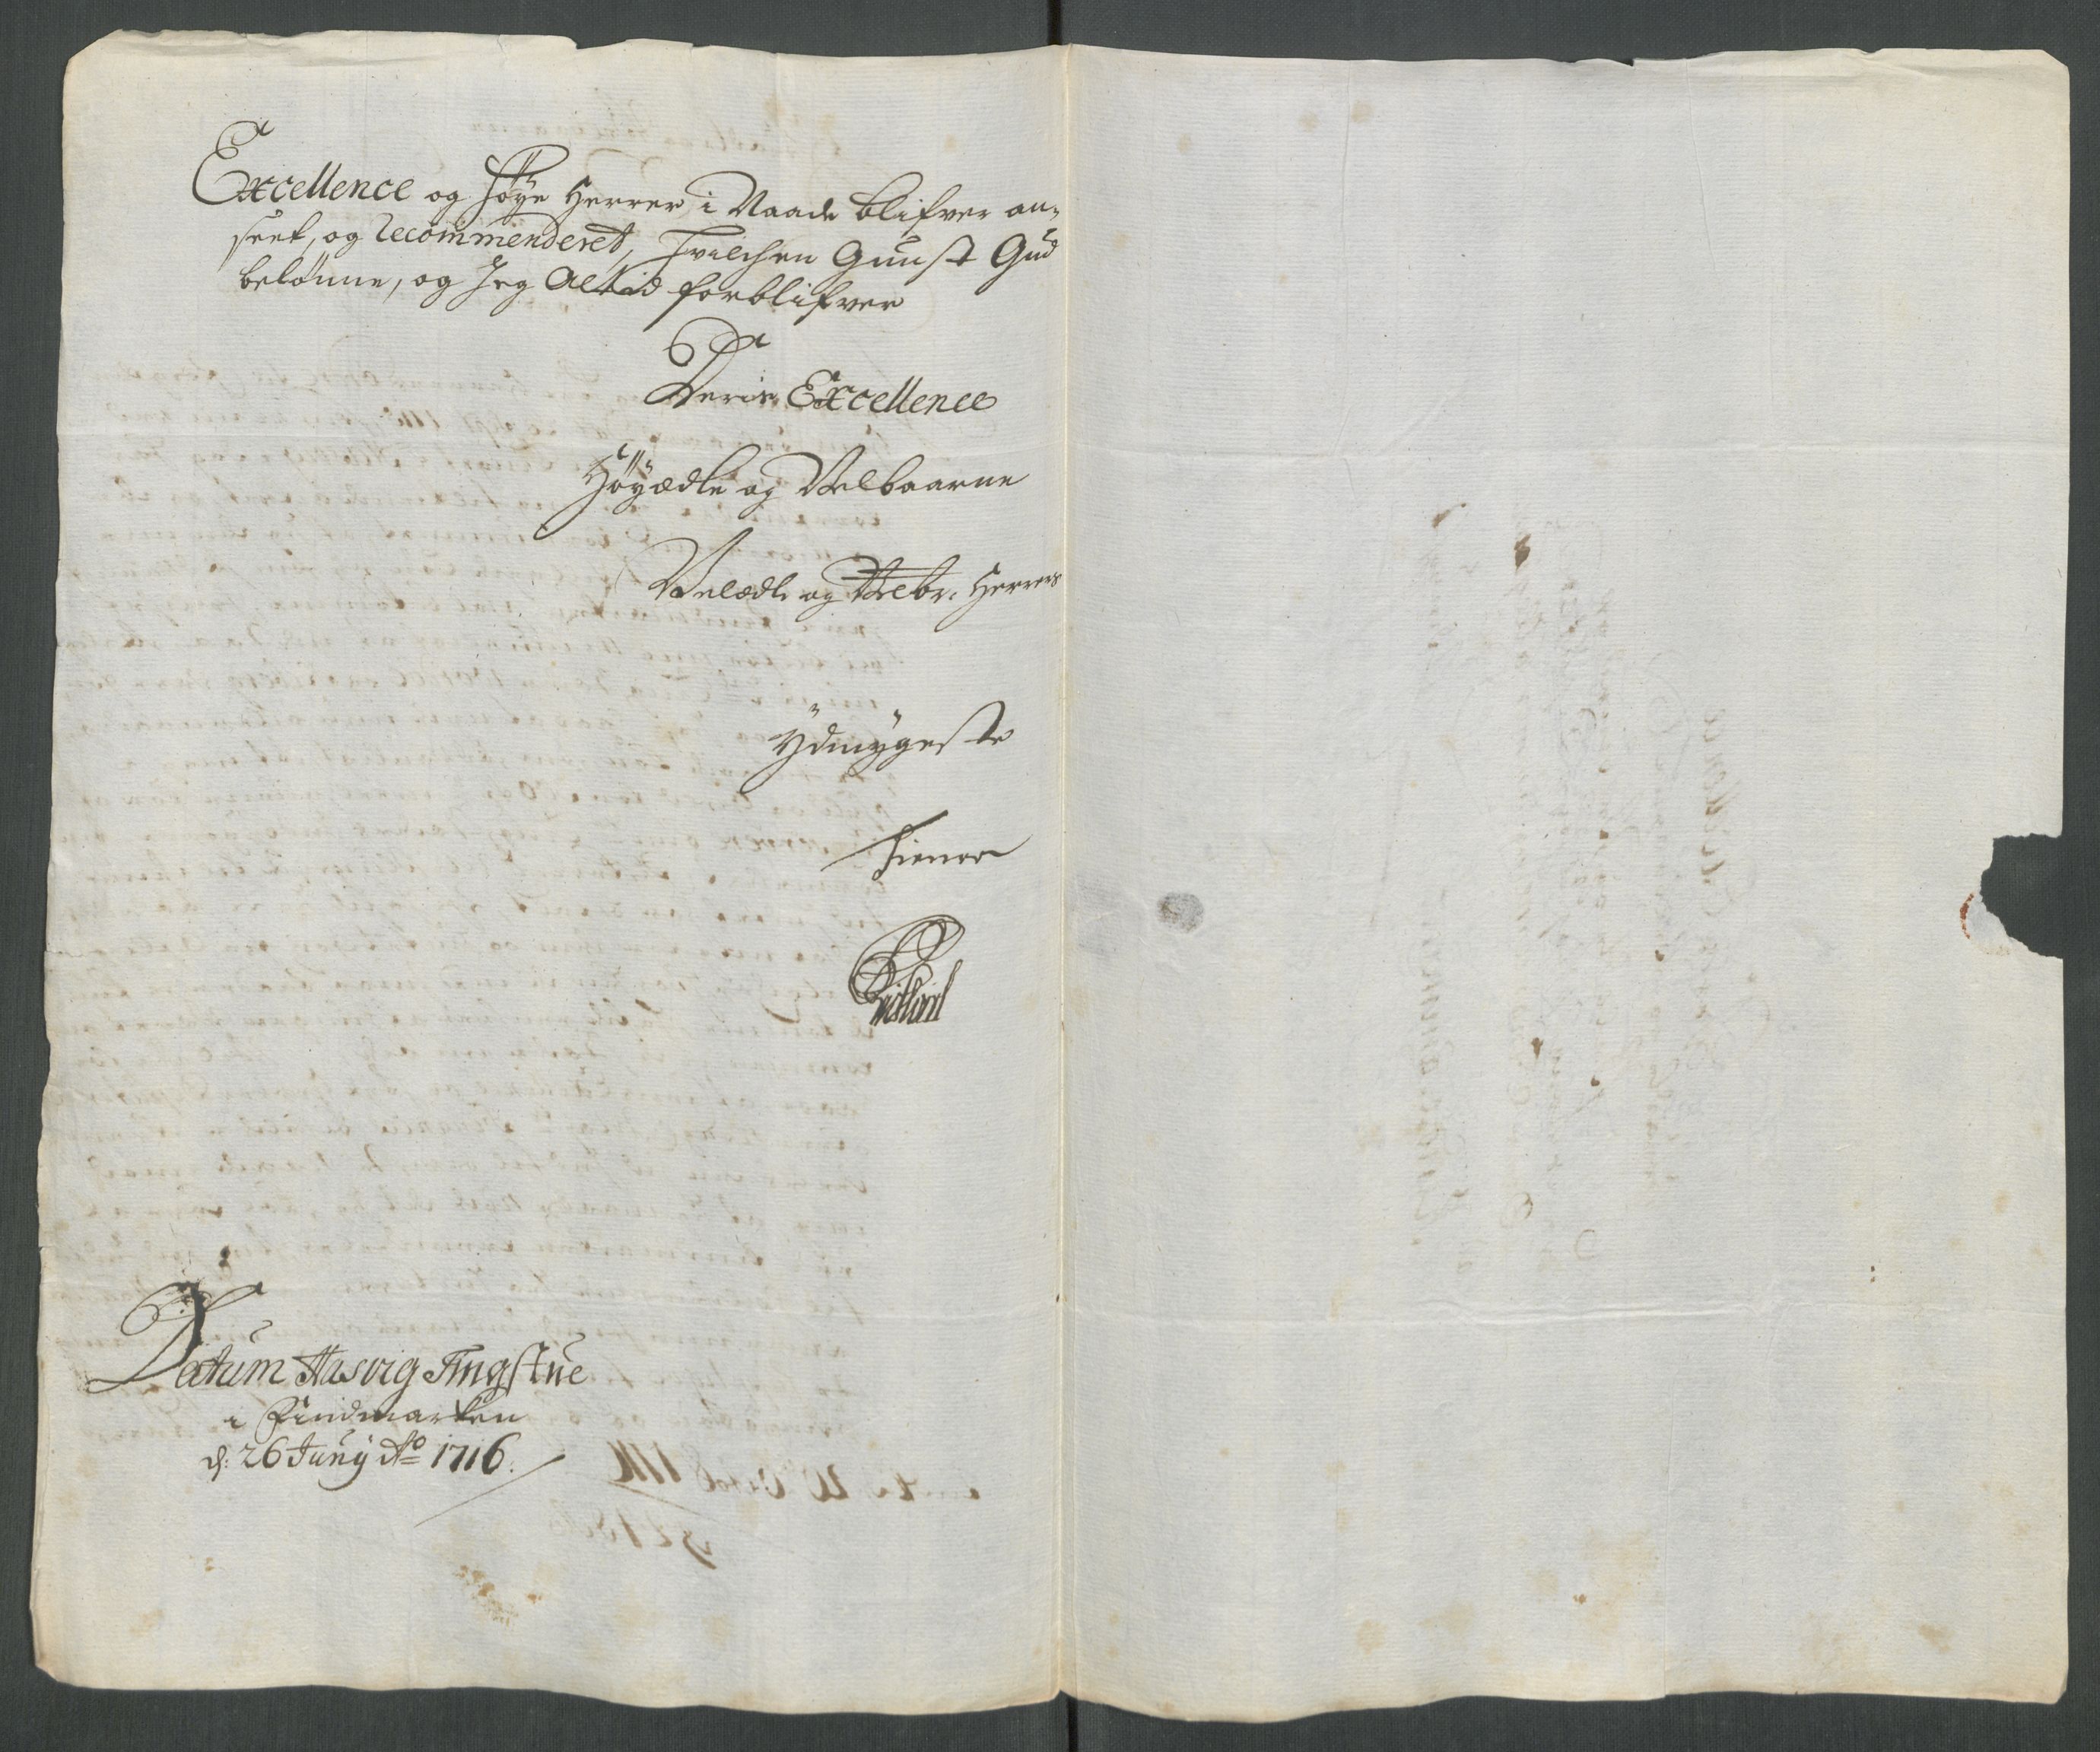 Excellence og høye Herrer i Naade blifver an-
seet, og recommenderet, hvilchen Gunst Gud
belønne, og Jeg Altid forblifver
Deris Excellence
Høyædle og Velbaarne
Velædle og Velbr: Herrers
Ydmygeste
tiener
Datum Hasvig Tingstue
i Findmarken
d: 26 Juny Ao 1716.